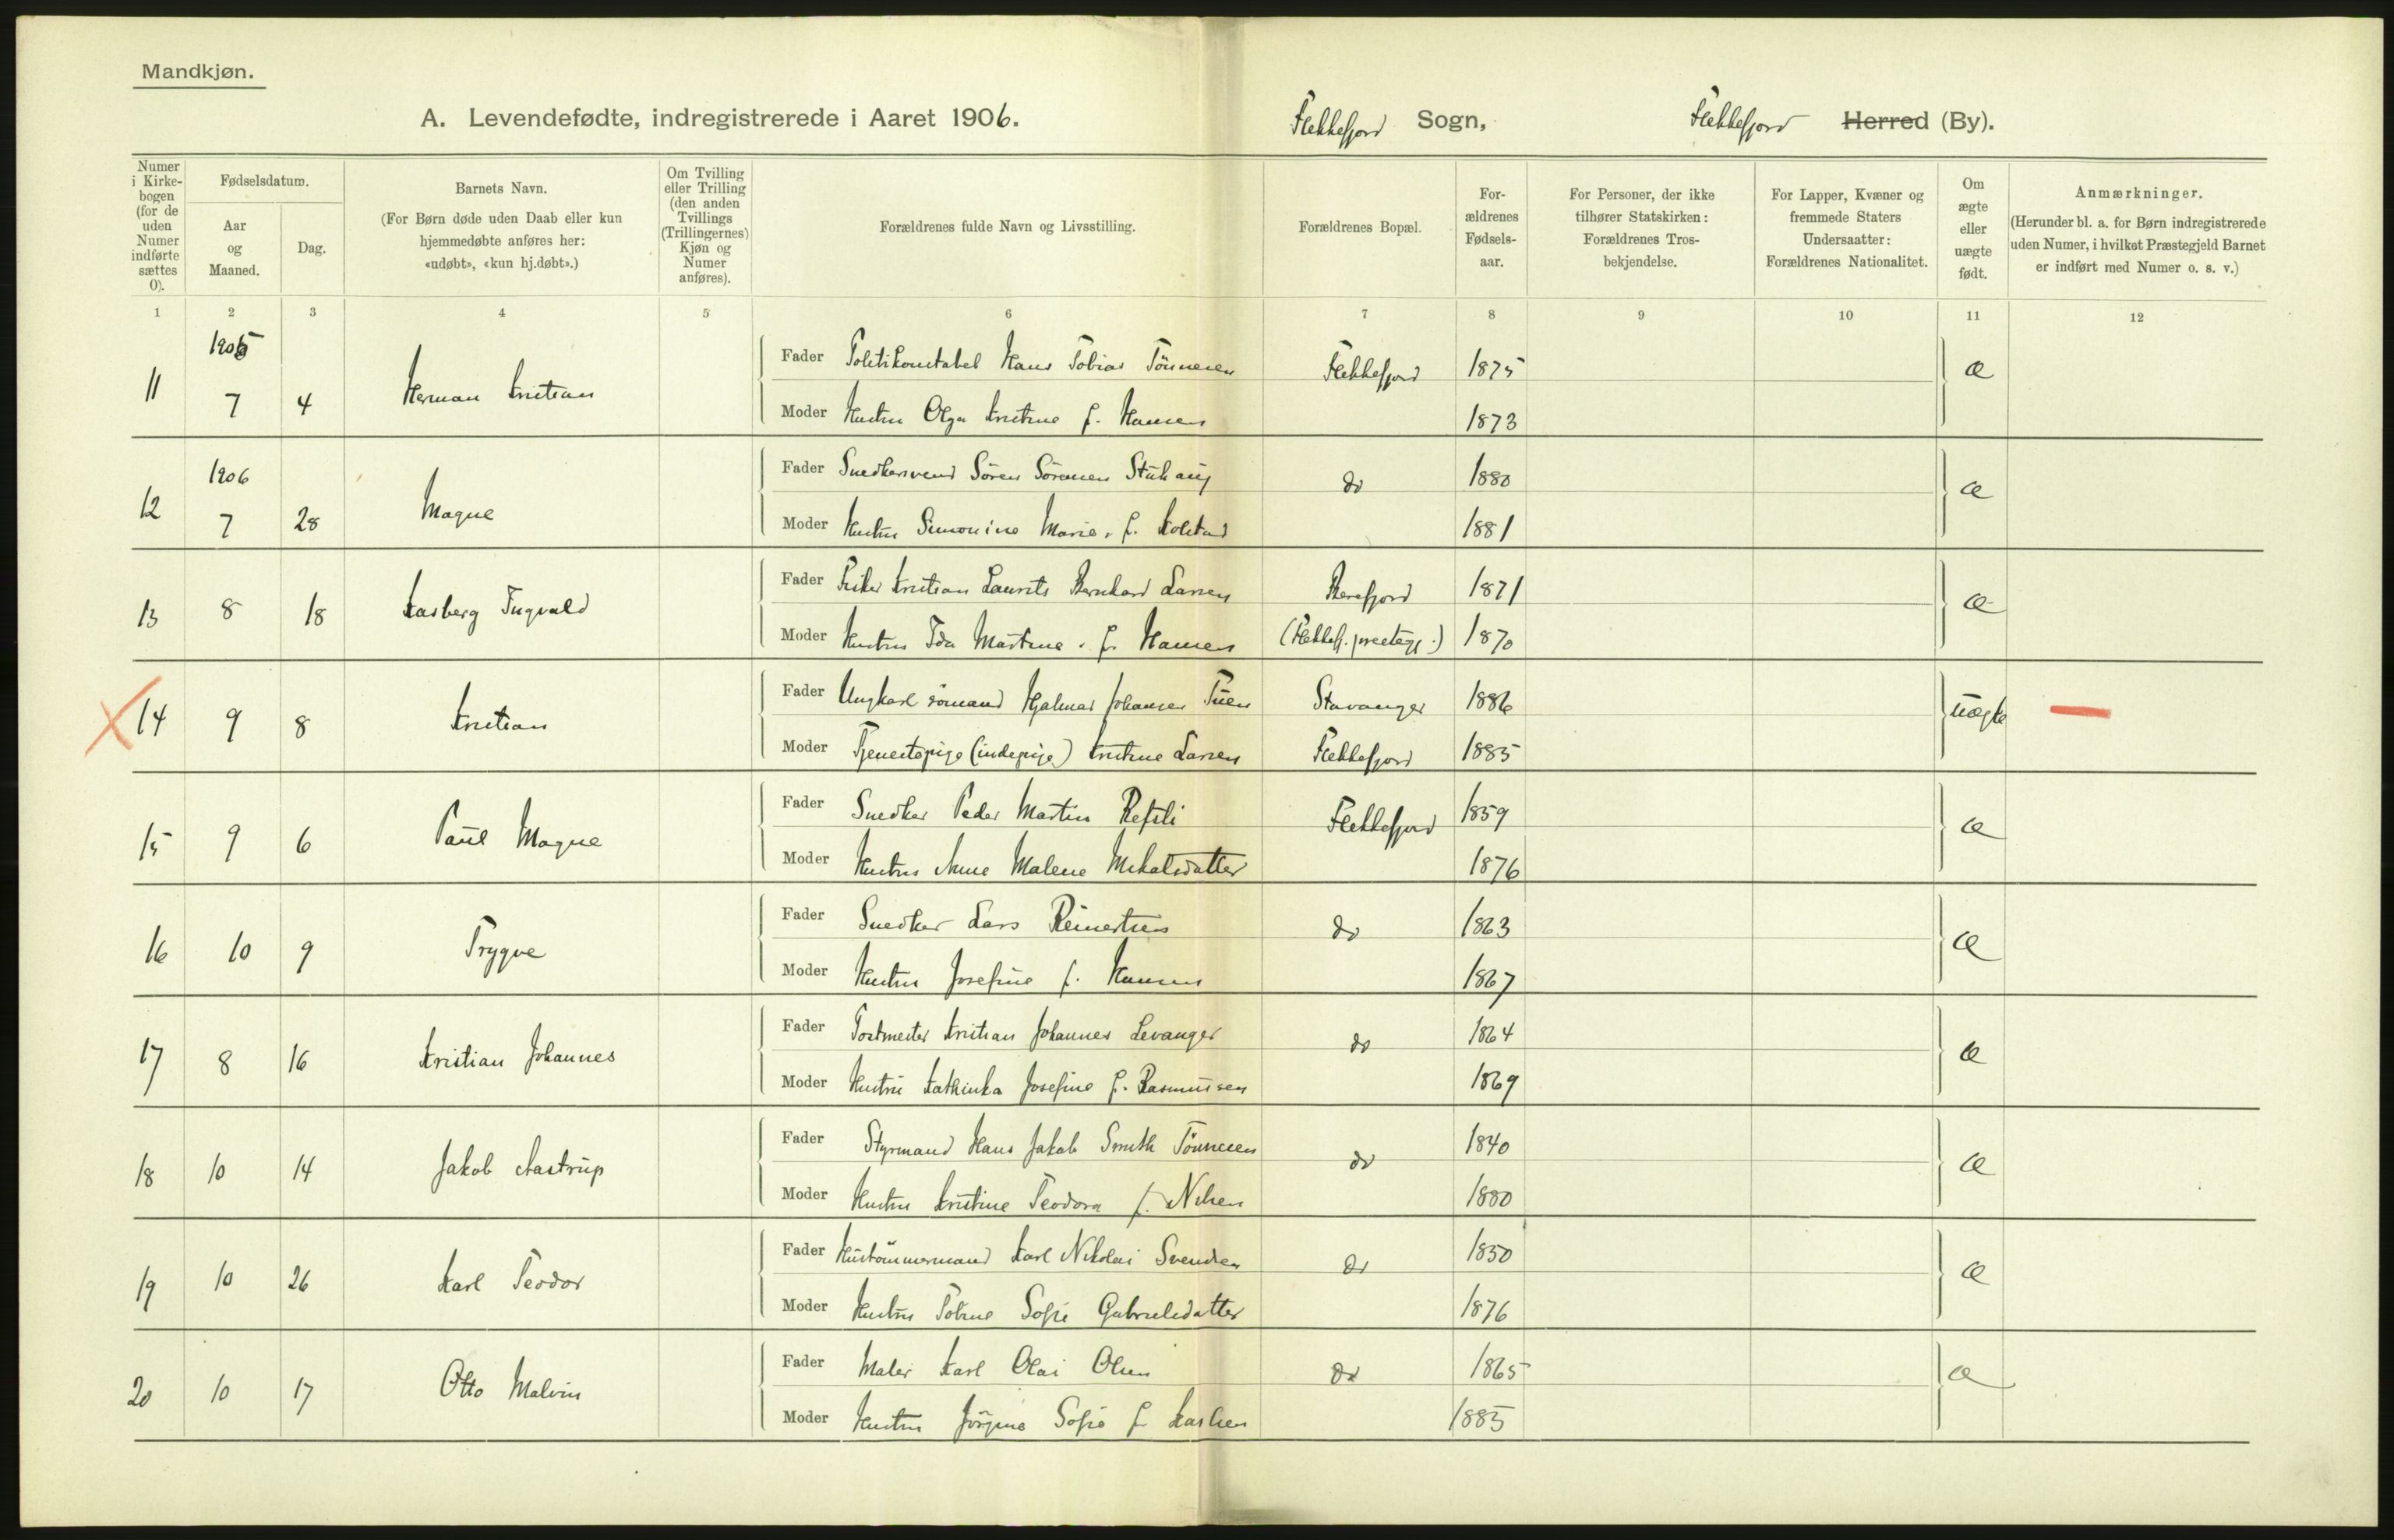 Mandkjøn.
A. Levendefødte, indregistrerede i Aaret 1906.
Flekkefjord Sogn,
Flekkefjord Herred (By).
Numer i Kirke-bogen (for de uden Numer indførte sættes 0).
Fødselsdatum.
Aar og Maaned.
Dag.
Barnets Navn.
(For Børn døde uden Daab eller kun hjemmedøbte anføres her: «udøbt», «kun hj.døbt».)
Om Tvilling eller Trilling (den anden Tvillings (Trillingernes) Kjøn og Numer anføres).
Forældrenes fulde Navn og Livsstilling.
Forældrenes Bopæl.
For-ældrenes Fødsels-aar.
For Personer, der ikke tilhører Statskirken: Forældrenes Tros-bekjendelse.
For Lapper, Kvæner og fremmede Staters Undersaatter: Forældrenes Nationalitet.
Om ægte eller uægte født.
Anmærkninger.
(Herunder bl. a. for Børn indregistrerede uden Numer, i hvilket Præstegjeld Barnet er indført med Numer o. s. v.)
1 2 3 4 5 6 7 8 9 10 11 12
1905
11 7 4 Herman Kristian
Fader Politikonstabel Hans Tobias Tönnesen Flekkefjord 1875 æ
Moder Hustru Olga Kristine f. Hansen 1873
1906
12 7 28 Magne
Fader Snedkersvend Sören Sörensen Stuhaug do 1880 æ
Moder Hustru Simonine Marie f. Kolstad 1881
13 8 18 Kasberg Ingvald
Fader Fisker Kristian Laurits Bernhard Larsen 1871 æ
Moder Hustru Ida Martine f. Hansen (Flekkefj. præstegj.) 1870
14 9 8 Kristian
Fader Ungkarl sömand Hjalmar Johansen Stavanger 1886 uægte
Moder Tjenestepige (indepige) Kristine Larsen Flekkefjord 1885
15 9 6 Paul Magne
Fader Snedker Peder Martin Refsti Flekkefjord 1859 æ
Moder Hustru Anne Malene Mikalsdatter 1876
16 10 9 Trygve
Fader Snedker Lars Reinertsen do 1863 æ
Moder Hustru Josefine f. Hansen 1867
17 8 16 Kristian Johannes
Fader Postmester Kristian Johannes Levanger do 1864 æ
Moder Hustru Kathinka Josefine f. Rasmussen 1869
18 10 14 Jakob Aastrup
Fader Styrmand Hans Jakob Smith Tönnesen do 1840 æ
Moder Hustru Kristine Teodora f. Nilsen 1880
19 10 26 Karl Teodor
Fader Hustömmermand Karl Nikolai Svendsen do 1850 æ
Moder Hustru Tobine Sofie Gabrielsdatter 1876
20 10 17 Otto Malvin
Fader Maler Karl Olai Olsen do 1865 æ
Moder Hustru Jörgine Sofie f. Karlsen 1885